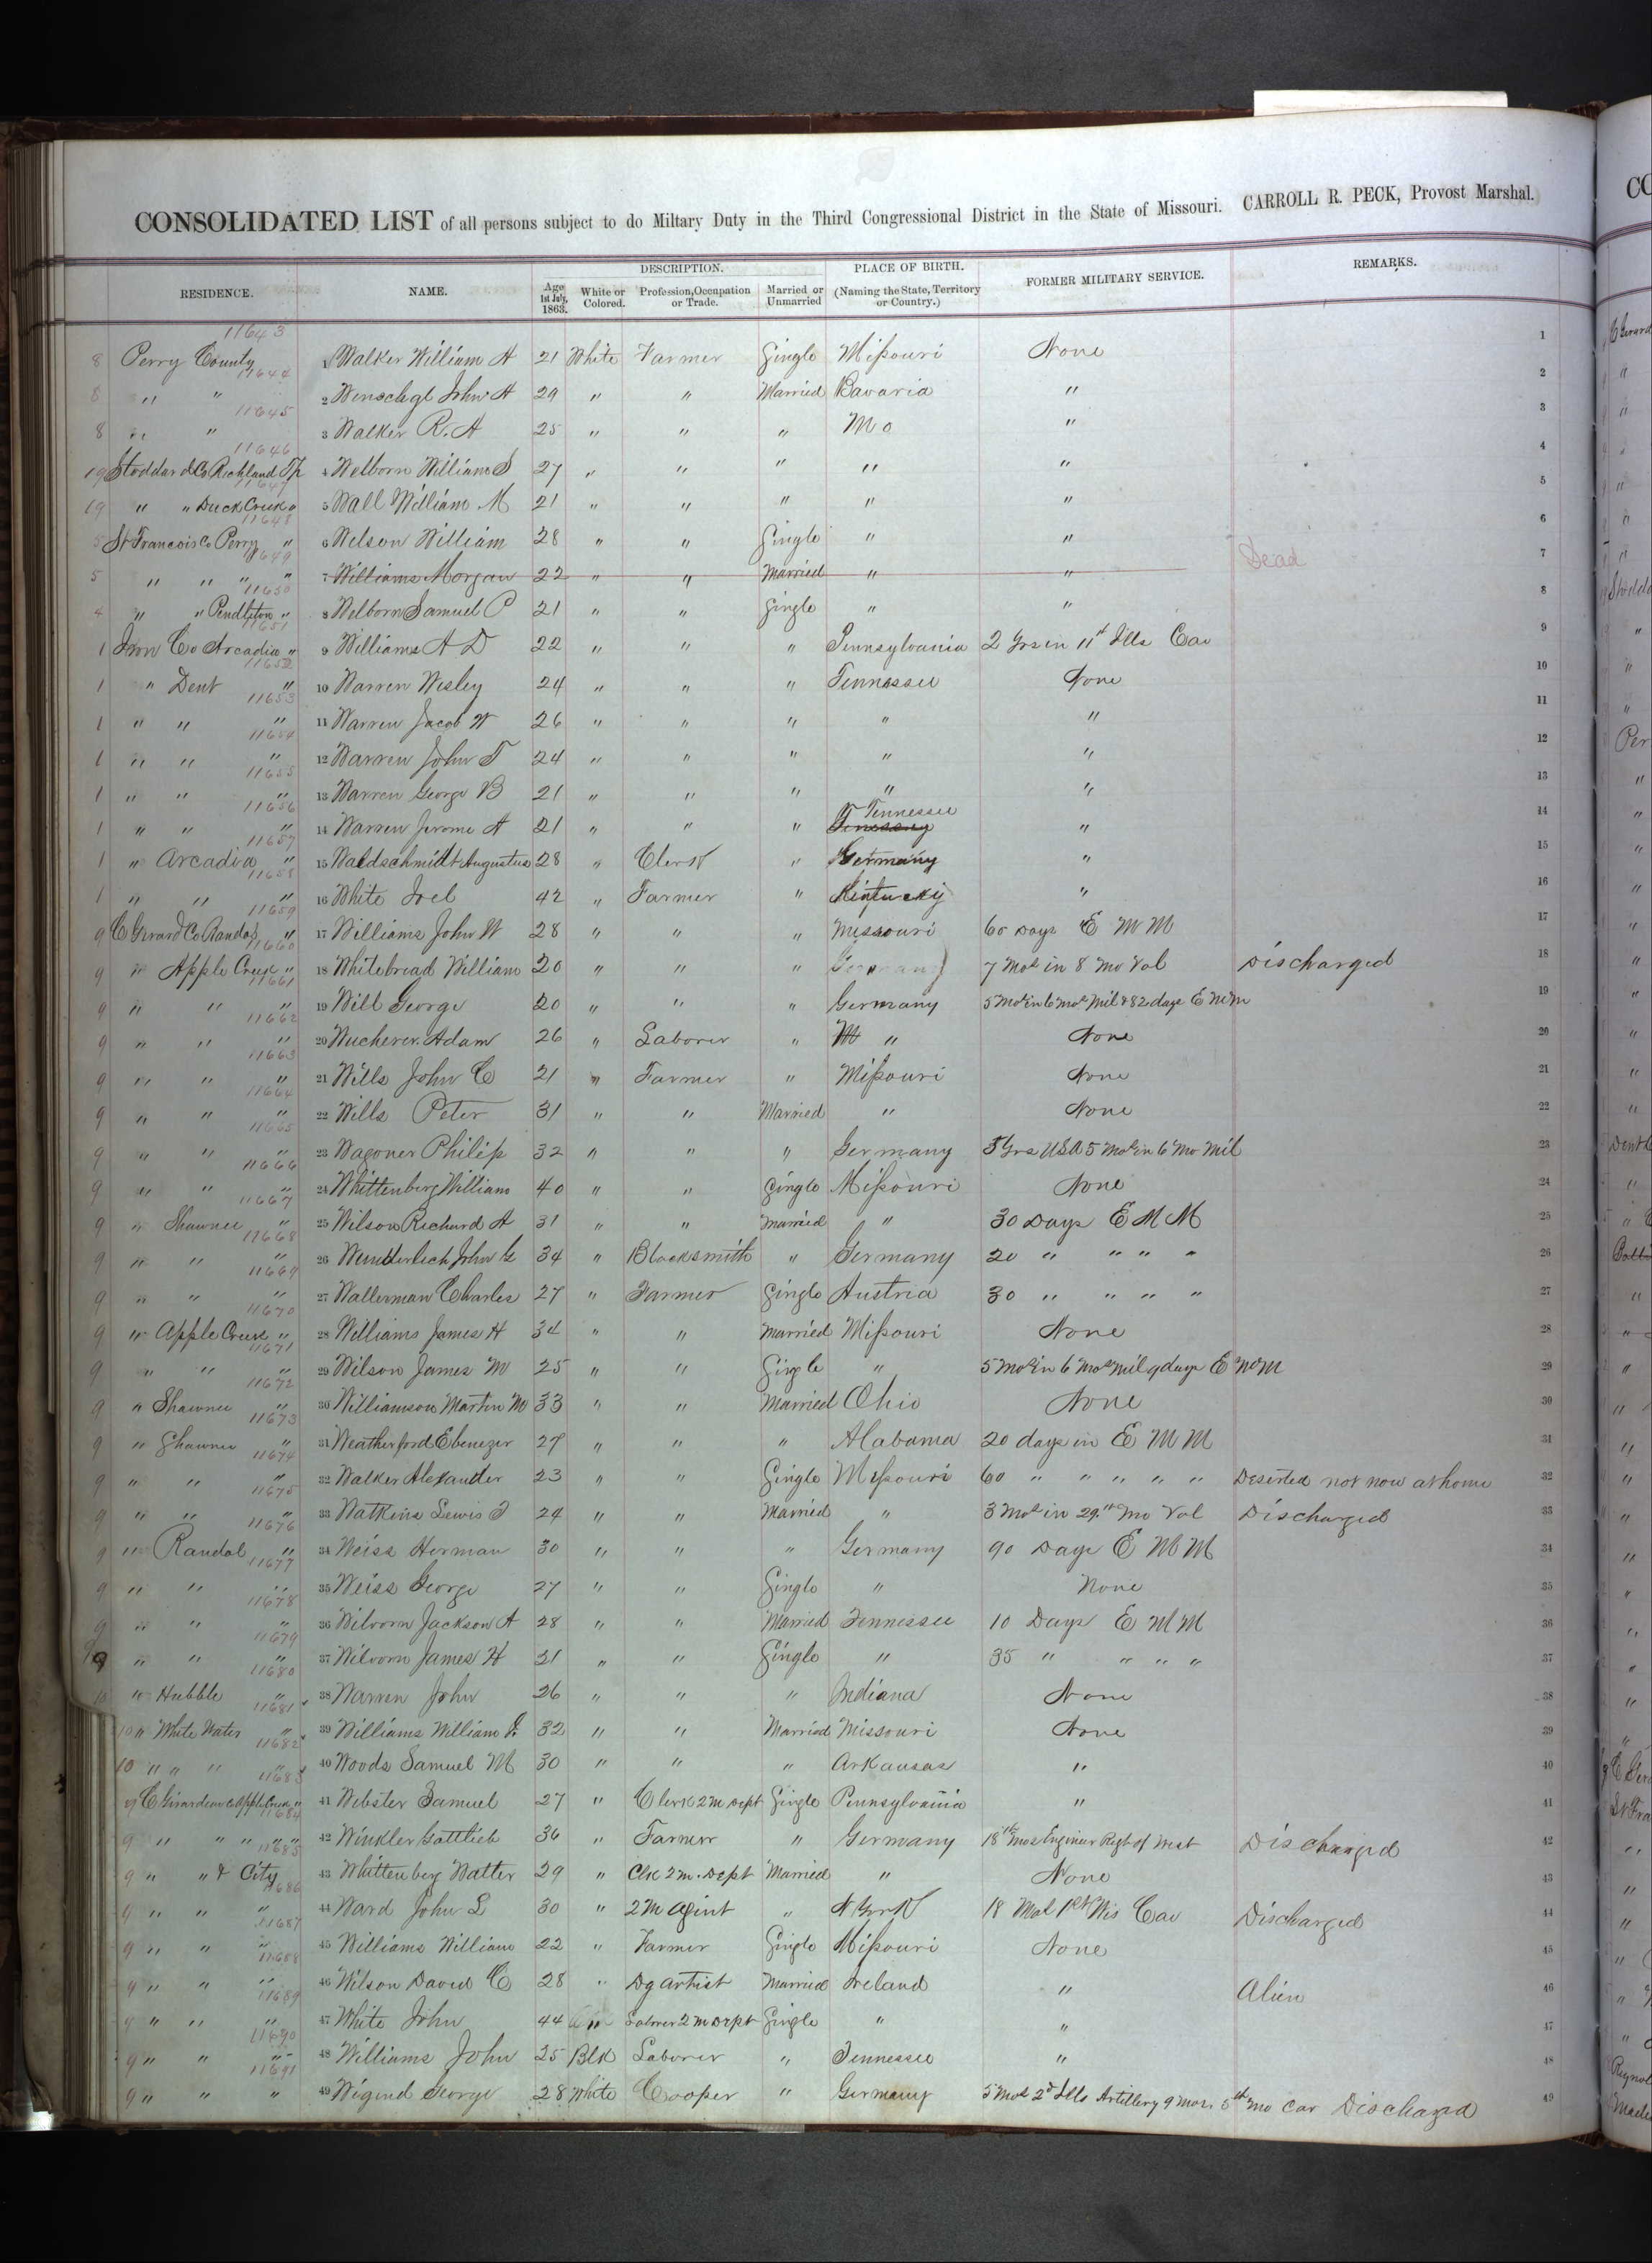 CONSOLIDATED LIST of all persons subject to do Miltary Duty in the Third Congressional District in the State of Missouri. CARROLL R. PECK, Provost Marshal.
RESIDENCE. NAME. DESCRIPTION. PLACE OF BIRTH. FORMER MILITARY SERVICE. REMARKS.
Age 1st July, 1863. White or Colored. Profession, Occupation or Trade. Married or Unmarried (Naming the State, Territory or Country.)
11643
8 Perry County 1 Walker William A 21 White Farmer Single Missouri None 1
11644
8 " " 2 Wenschgl John A 29 " " Married Bavaria " 2
11645
8 " " 3 Walker R. A 25 " " " Mo " 3
11646
19 Stoddard Co Richland Tp 4 Welborn William S 27 " " " " " 4
11647
19 " " Duck Creek " 5 Wall William M 21 " " " " " 5
11648
5 St Francois Co Perry " 6 Wilson William 28 " " Single " " 6
11649
5 " " " " 7 Williams Morgan 22 " " Married " " Dead 7
11650
4 " " Pendleton " 8 Welborn Samuel P 21 " " Single " " 8
11651
1 Iron Co Arcadia " 9 Williams A D 22 " " " Pennsylvania 2 Yrs in 11st Ills Cav 9
11652
1 " Dent " 10 Warren Wesley 24 " " " Tennessee None 10
11653
1 " " " 11 Warren Jacob W 26 " " " " " 11
11654
1 " " " 12 Warren John T 24 " " " " " 12
11655
1 " " " 13 Warren George B 21 " " " " " 13
11656
1 " " " 14 Warren Jerome A 21 " " " Tennessee " 14
11657
1 " Arcadia " 15 Waldschmidt Augustus 28 " Clerk " Germany " 15
11658
1 " " " 16 White Joel 42 " Farmer " Kentucky " 16
11659
9 C Girard Co Randal " 17 Williams John W 28 " " " Missouri 60 Days E M M 17
11660
9 " Apple Creek " 18 Whitebread William 20 " " " Germany 7 Mos in 8 Mo Vol Discharged 18
11661
9 " " " 19 Will George 20 " " " Germany 5 Mos in 6 mos Mil & 82 days E M M 19
11662
9 " " " 20 Wucherer Adam 26 " Laborer " " None 20
11663
9 " " " 21 Wills John C 21 " Farmer " Missouri None 21
11664
9 " " " 22 Wills Peter 31 " " Married " None 22
11665
9 " " " 23 Wagoner Philip 32 " " " Germany 5 Yrs USA 5 Mos in 6 Mo Mil 23
11666
9 " " 24 Whittenberg William 40 " " Single Missouri None 24
11667
9 " Shawnee " 25 Wilson Richard A 31 " " Married " 30 Days E M M 25
11668
9 " " " 26 Wunderlich John G 34 " Blacksmith " Germany 20 " " " " 26
11669
9 " " " 27 Wallerman Charles 27 " Farmer Single Austria 30 " " " " 27
11670
9 " Apple Creek " 28 Williams James H 34 " " Married Missouri None 28
11671
9 " " " 29 Wilson James M 25 " " Single " 5 Mos in 6 Mos Mil 9 days E M M 29
11672
9 " Shawnee " 30 Williamson Martin M 33 " " Married Ohio None 30
11673
9 " Shawnee " 31 Weatherford Ebenezer 27 " " " Alabama 20 days in E M M 31
11674
9 " " " 32 Walker Alexander 23 " " Single Missouri 60 " " " " " Deserted not now at home 32
11675
9 " " " 33 Watkins Lewis J 24 " " Married " 3 Mos in 29th Mo Vol Discharged 33
11676
9 " Randal " 34 Weiss Herman 30 " " " Germany 90 Days E M M 34
11677
9 " " " 35 Weiss George 27 " " Single " None 35
11678
9 " " " 36 Wilvorn Jackson A 28 " " Married Tennessee 10 Days E M M 36
11679
9 " " " 37 Wilvorn James H 21 " " Single " 35 " " " " 37
11680
10 " Hubble " 38 Warren John 26 " " " Indiana None 38
11681
10 " White Water " 39 Williams William G. 32 " " Married Missouri None 39
11682
10 " " " " 40 Woods Samuel M 30 " " " Arkansas " 40
11683
9 C Girardeau Co Apple Creek " 41 Webster Samuel 27 " Clerk 2 M Dept Single Pennsylvania " 41
11684
9 " " " " " 42 Winkler Gottlieb 36 " Farmer " Germany 18 Mos Engineer Regt of West Discharged 42
11685
9 " " & City 43 Whittenberg Walter 29 " Clk 2 M. Dept Married " None 43
11686
9 " " " 44 Ward John L 30 " 2 M Agent " N York 18 Mos 1st Wis Cav Discharged 44
11687
9 " " " 45 Williams William 22 " Farmer Single Missouri None 45
11688
9 " " " 46 Wilson David C 28 " Dg Artist Married Ireland " Alien 46
11689
9 " " " 47 White John 44 " Laborer 2 M Dept Single " " 47
11690
9 " " " 48 Williams John 25 Blk Laborer " Tennessee " 48
11691
9 " " " 49 Wigend George 28 White Cooper " Germany 5 Mos 2d Ills Artillery 9 mos. 5th Mo Cav Discharged 49